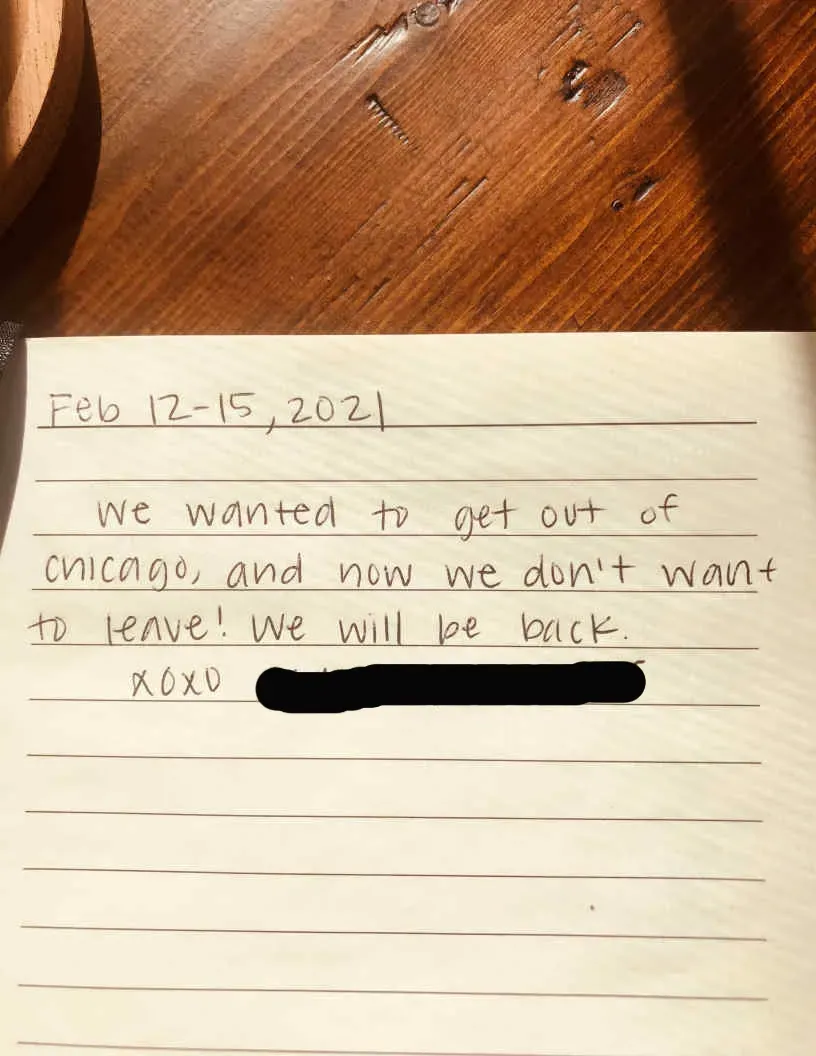 Feb 12-15, 2021
We wanted to get out of
chicago, and now we don't want
to leave! We will be back.
xoxo